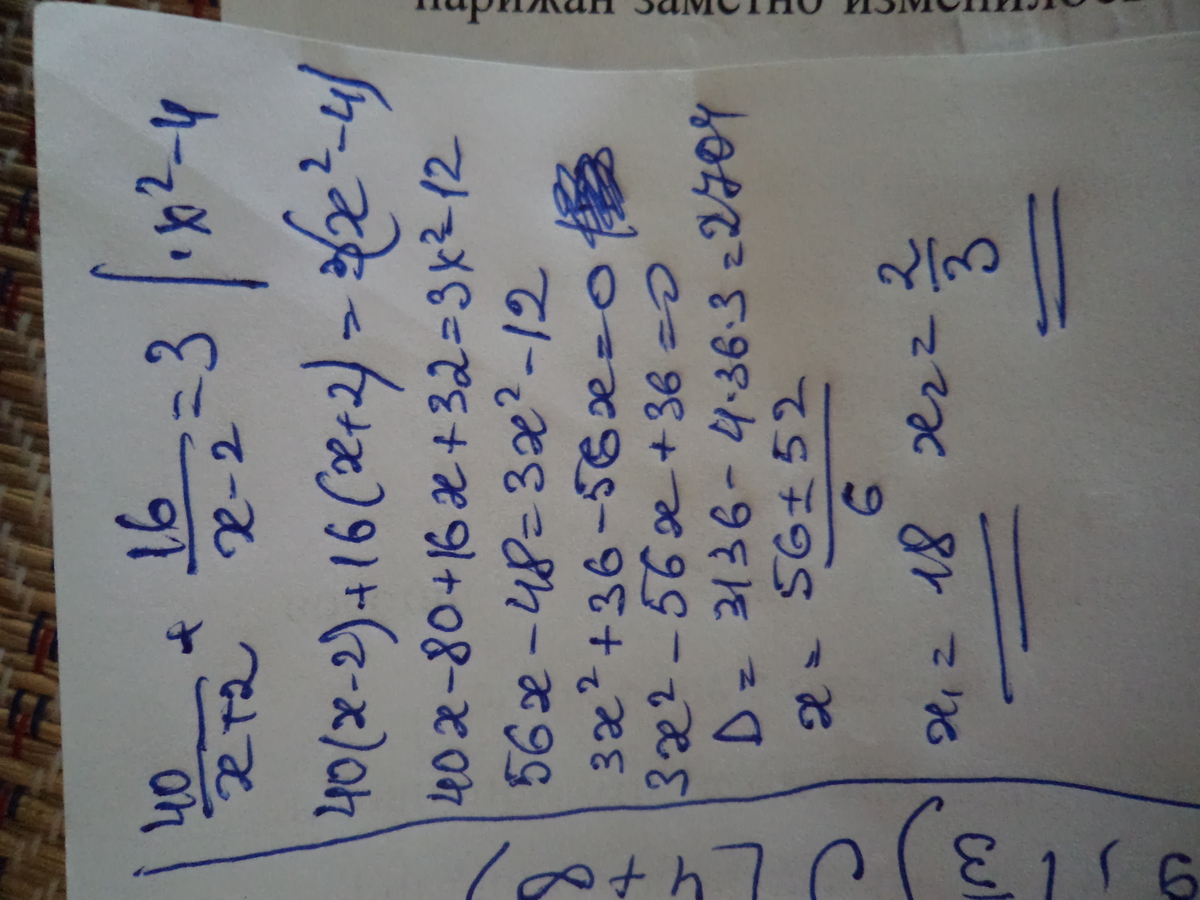 парижан заметно изменилось
40/(x+2) + 16/(x-2) = 3 | · x² - 4
40(x-2)+16(x+2) = 3(x²-4)
40x-80+16x+32=3x²-12
56x-48=3x²-12
3x²+36-56x=0
3x²-56x+36=0
D= 3136-4·36·3=2704
x= (56±52)/6
x₁= 18 x₂= 2/3